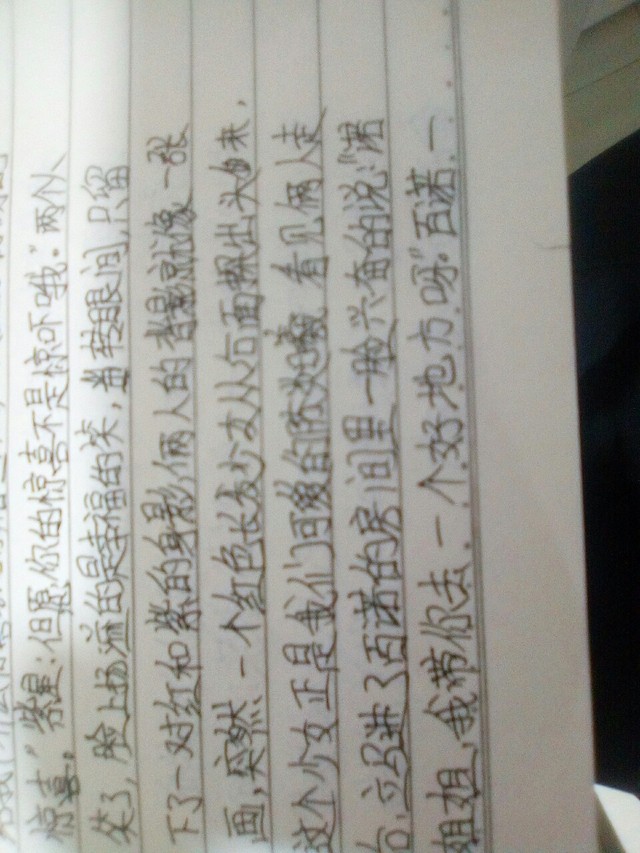 惊喜。”紫星:“但愿你的惊喜不是惊吓哦。”两个人
笑了,脸上扬溢的是幸福的笑,当转眼间,只留
下了一对红和紫的身影,俩人的背影就像一张
画,突然一个红色长发少女从后面探出头由来,
这个少女正是我们可爱的陈 看见俩人走
后,立马进了百诺的房间里一脸兴奋的说:“诺
姐姐,我带你去一个好地方呀。”百诺一